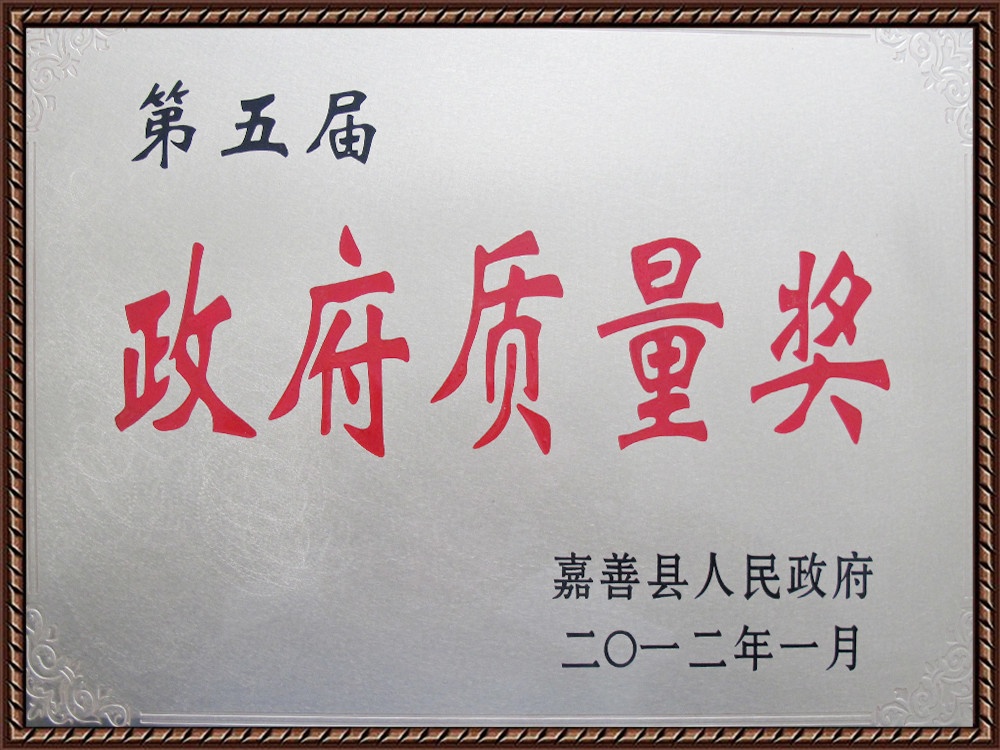 第五届
政府质量奖
嘉善县人民政府
二〇一二年一月